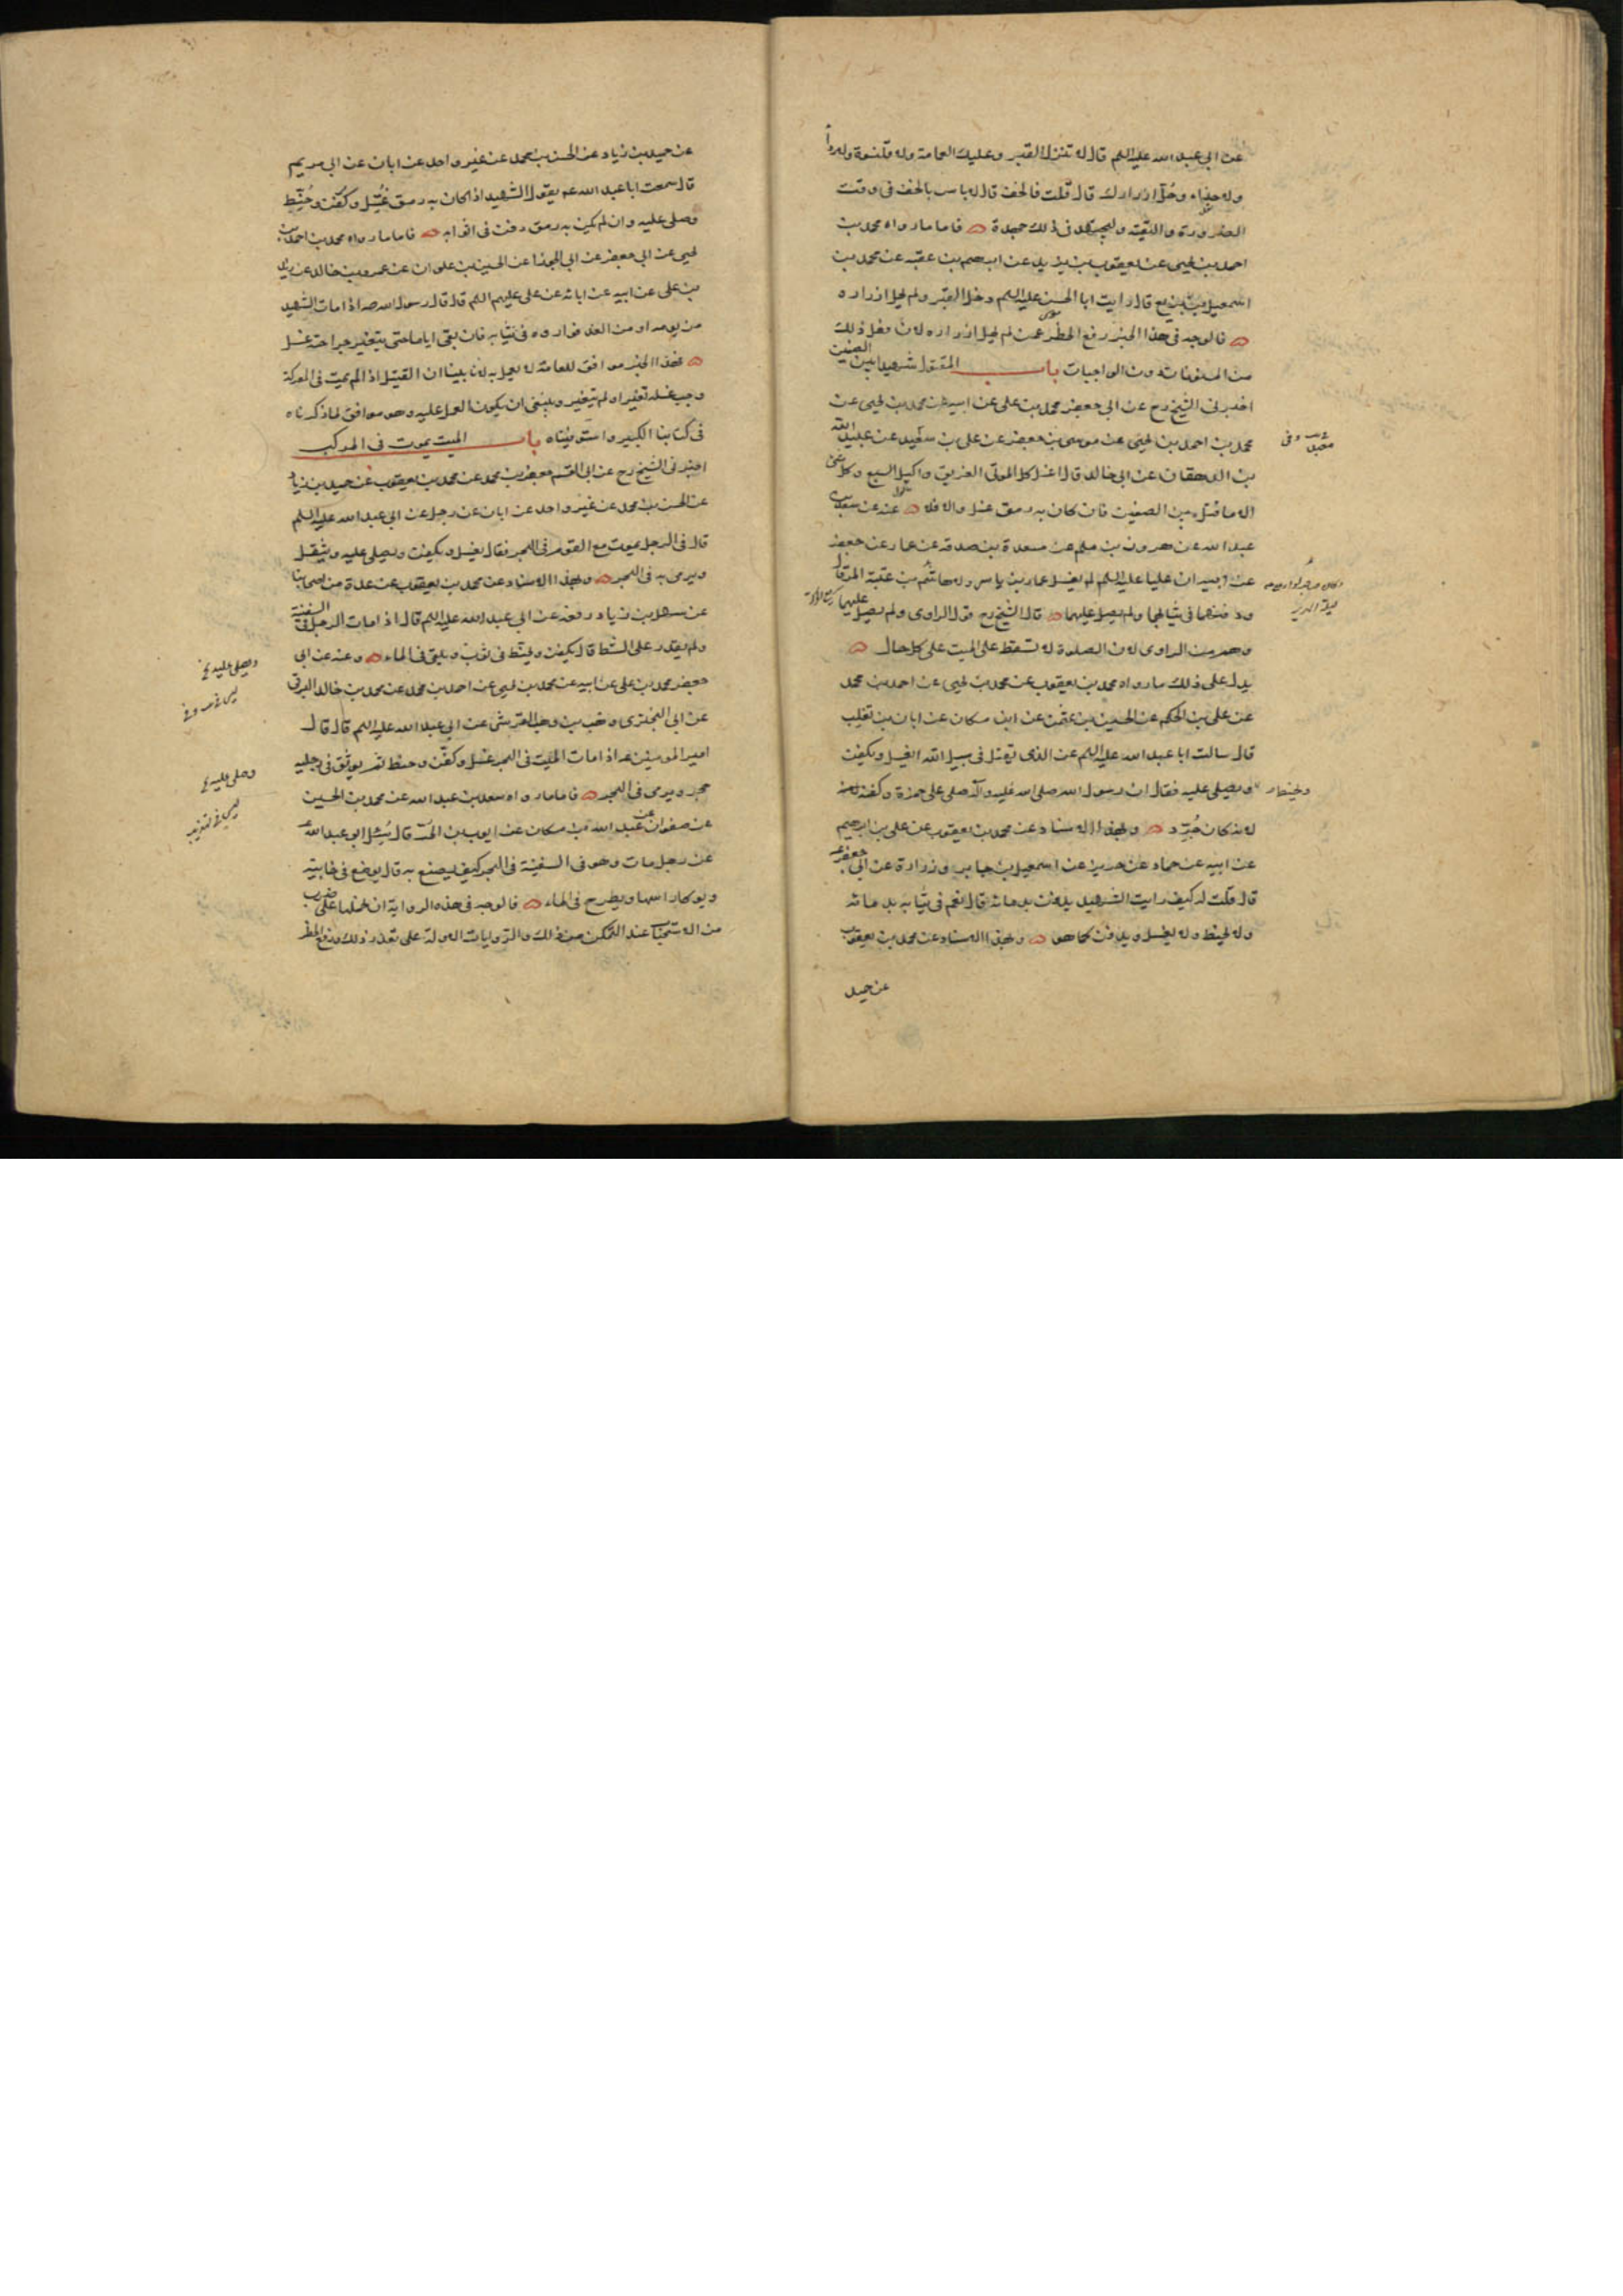 عن ابي عبد الله عليه السلم قال لا تنزل القبر وعليك العمامة ولا قلنسوة ولا رداء
ولا حذاء وحلل ازرارك قال قلت فالخف قال لا باس بالخف في وقت
الضرورة والتقية وليجهد في ذلك جهده فاما ما رواه محمد بن
احمد بن يحيى عن يعقوب بن يزيد عن ابرهيم بن عقبه عن محمد بن
اسمعيل بن بزيع قال رايت ابا الحسن عليه السلم دخل القبر ولم يحل ازراره
فالوجه في هذا الخبر رفع الحظر عمن لم يحل ازراره لان فعل ذلك
من المسنونات دون الواجبات باب المقتول شهيدا بين الصفين
اخبرني الشيخ رح عن ابي جعفر محمد بن علي عن ابيه عن محمد بن يحيى عن
محمد بن احمد بن يحيى عن موسى بن جعفر عن علي بن سعيد عن عبيد الله
بن الدهقان عن ابي خالد قال اغسل كل الموتى الغريق واكيل السبع وكل شئ
الا ما قتل بين الصفين فان كان به رمق غسل والا فلا عنه عن سعد بن
عبد الله عن هرون بن مسلم عن مسعدة بن صدقه عن عمار عن جعفر
عن ابيه ان عليا عليه السلم لم يغسل عمار بن ياسر ولا هاشم بن عتبة المرقال
ودفنهما في ثيابهما ولم يصل عليهما قال الشيخ رح قول الراوي ولم يصل عليهما
وهم من الراوي لان الصلوة لا تسقط على الميت على كل حال
يدل على ذلك ما رواه محمد بن يعقوب عن محمد بن يحيى عن احمد بن محمد
عن علي بن الحكم عن الحسين بن عثمن عن ابن مسكان عن ابان بن تغلب
قال سالت ابا عبد الله عليه السلم عن الذي يقتل في سبيل الله ايغسل ويكفن
ويحنط
ويصلى عليه فقال ان رسول الله صلى الله عليه وآله صلى على حمزة وكفنه لانه
لانه كان جرد وبهذا الاسناد عن محمد بن يعقوب عن علي بن ابرهيم
عن ابيه عن حماد عن حريز عن اسمعيل بن جابر وزرارة عن ابي جعفر ع
قال قلت له كيف رايت الشهيد يدفن بدمائه قال نعم في ثيابه بدمائه
ولا يحنط ولا يغسل ويدفن كما هو وبهذا الاسناد عن محمد بن يعقوب
عن حميد
عن حميد بن زياد عن الحسن بن محمد عن غير واحد عن ابان عن ابي مريم
قال سمعت ابا عبد الله عم يقول الشهيد اذا كان به رمق غسل وكفن وحنط
وصلى عليه وان لم يكن به رمق دفن في اثوابه فاما ما رواه محمد بن احمد بن
يحيى عن ابي جعفر عن ابي الجوزا عن الحسين بن علوان عن عمرو بن خالد عن زيد
بن علي عن ابيه عن ابائه عن علي عليهم السلم قال قال رسول الله ص اذا مات الشهيد
من يومه او من الغد فواروه في ثيابه فان بقى اياما حتى يتغير جراحته غسل
فهذا الخبر موافق للعامة لا يعمل به لانا بينا ان القتيل اذا لم يمت في المعركة
وجب غسله تغير او لم يتغير وينبغي ان يكون العمل عليه وهو موافق لما ذكرناه
في كتابنا الكبير واستوفيناه باب الميت يموت في المركب
اخبرني الشيخ رح عن ابي القسم جعفر بن محمد عن محمد بن يعقوب عن حميد بن زياد
عن الحسن بن محمد عن غير واحد عن ابان عن رجل عن ابي عبد الله عليه السلم
قال في الرجل يموت مع القوم في البحر فقال يغسل ويكفن ويصلى عليه ويثقل
ويرمى به في البحر وبهذا الاسناد عن محمد بن يعقوب عن عدة من اصحابنا
عن سهل بن زياد رفعه عن ابي عبد الله عليه السلم قال اذا مات الرجل في السفينة
ولم يقدر على الشط قال يكفن ويحنط في ثوب ويلقى في الماء وعنه عن ابي
جعفر محمد بن علي عن ابيه عن محمد بن يحيى عن احمد بن محمد عن محمد بن خالد البرقي
عن ابي البختري وهب بن وهب القرشي عن ابي عبد الله عليه السلم قال قال
امير المومنين ع اذا مات الميت في البحر غسل وكفن وحنط ثم يوثق في رجليه
حجر ويرمى في البحر فاما ما رواه سعد بن عبد الله عن محمد بن الحسين
عن صفوان عن عبد الله بن مسكان عن ايوب بن الحر قال سئل ابو عبد الله ع
عن رجل مات وهو في السفينة في البحر كيف يصنع به قال يوضع في خابية
ويوكا راسها ويطرح في الماء فالوجه في هذه الرواية ان نحملها على ضرب
من الاستحباب عند التمكن من ذلك والروايات الاولة على تعذر ذلك ورفع الحظر